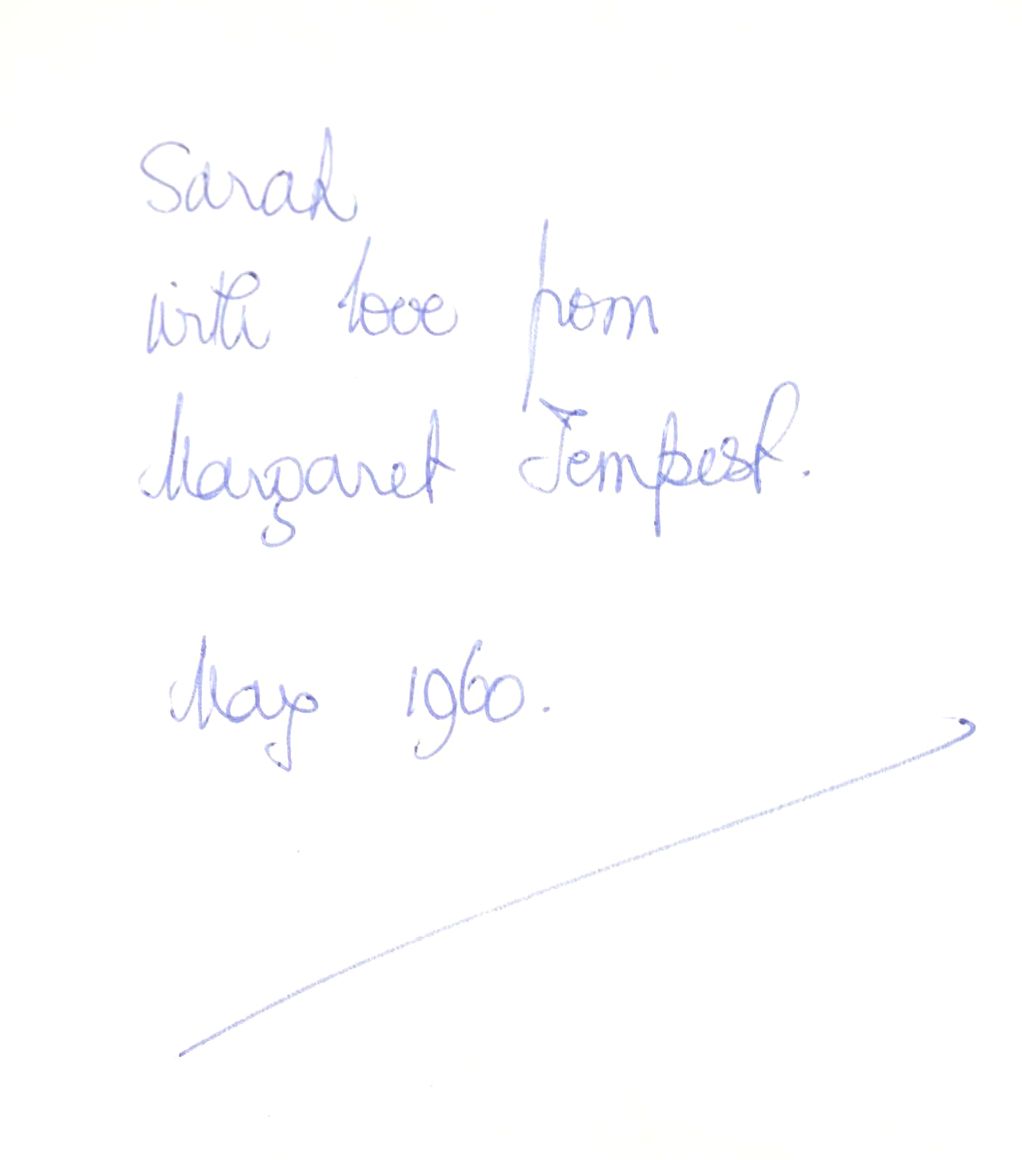 Sarah
with love from
Margaret Tempest.
May 1960.